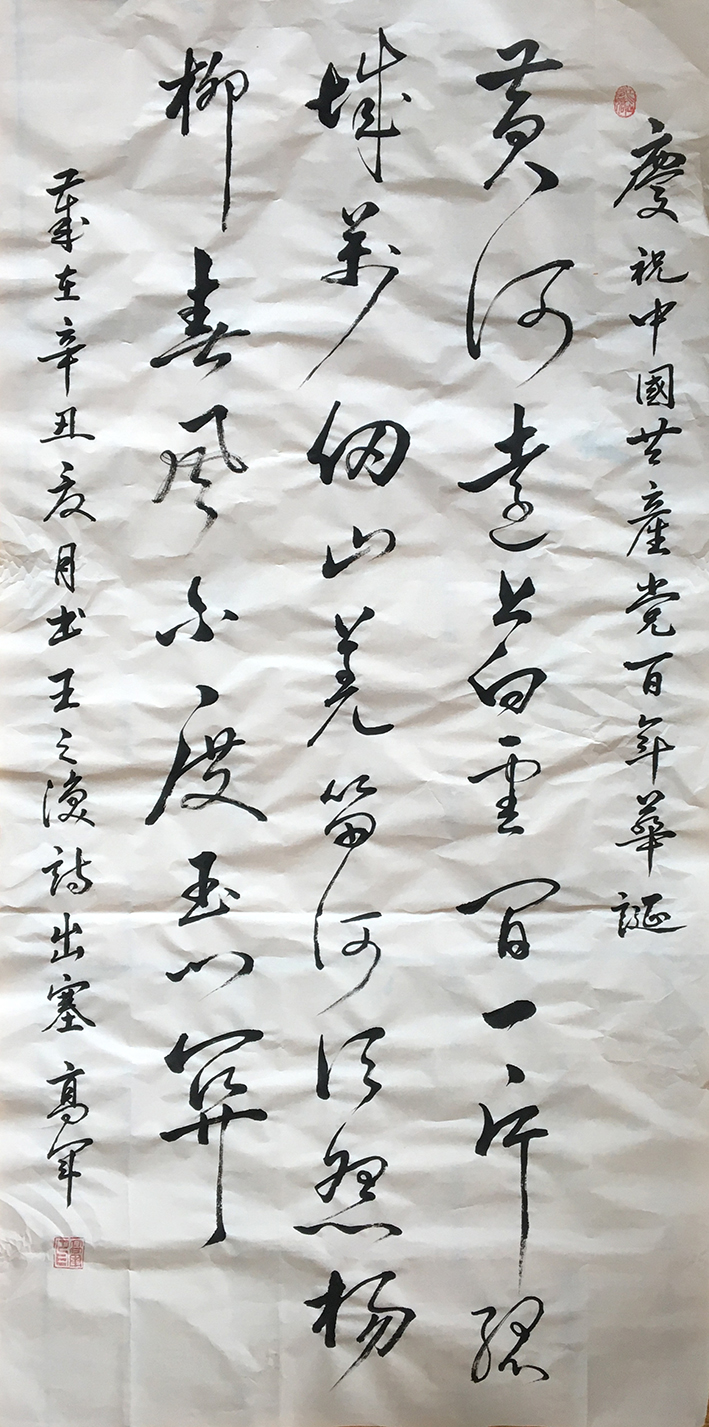 慶祝中國共產党百年華誕
黄河遠上白雲间一片孤
城萬仞山羌笛何須怨楊
柳春風不度玉门關
歲在辛丑夏月书王之渙詩出塞高军